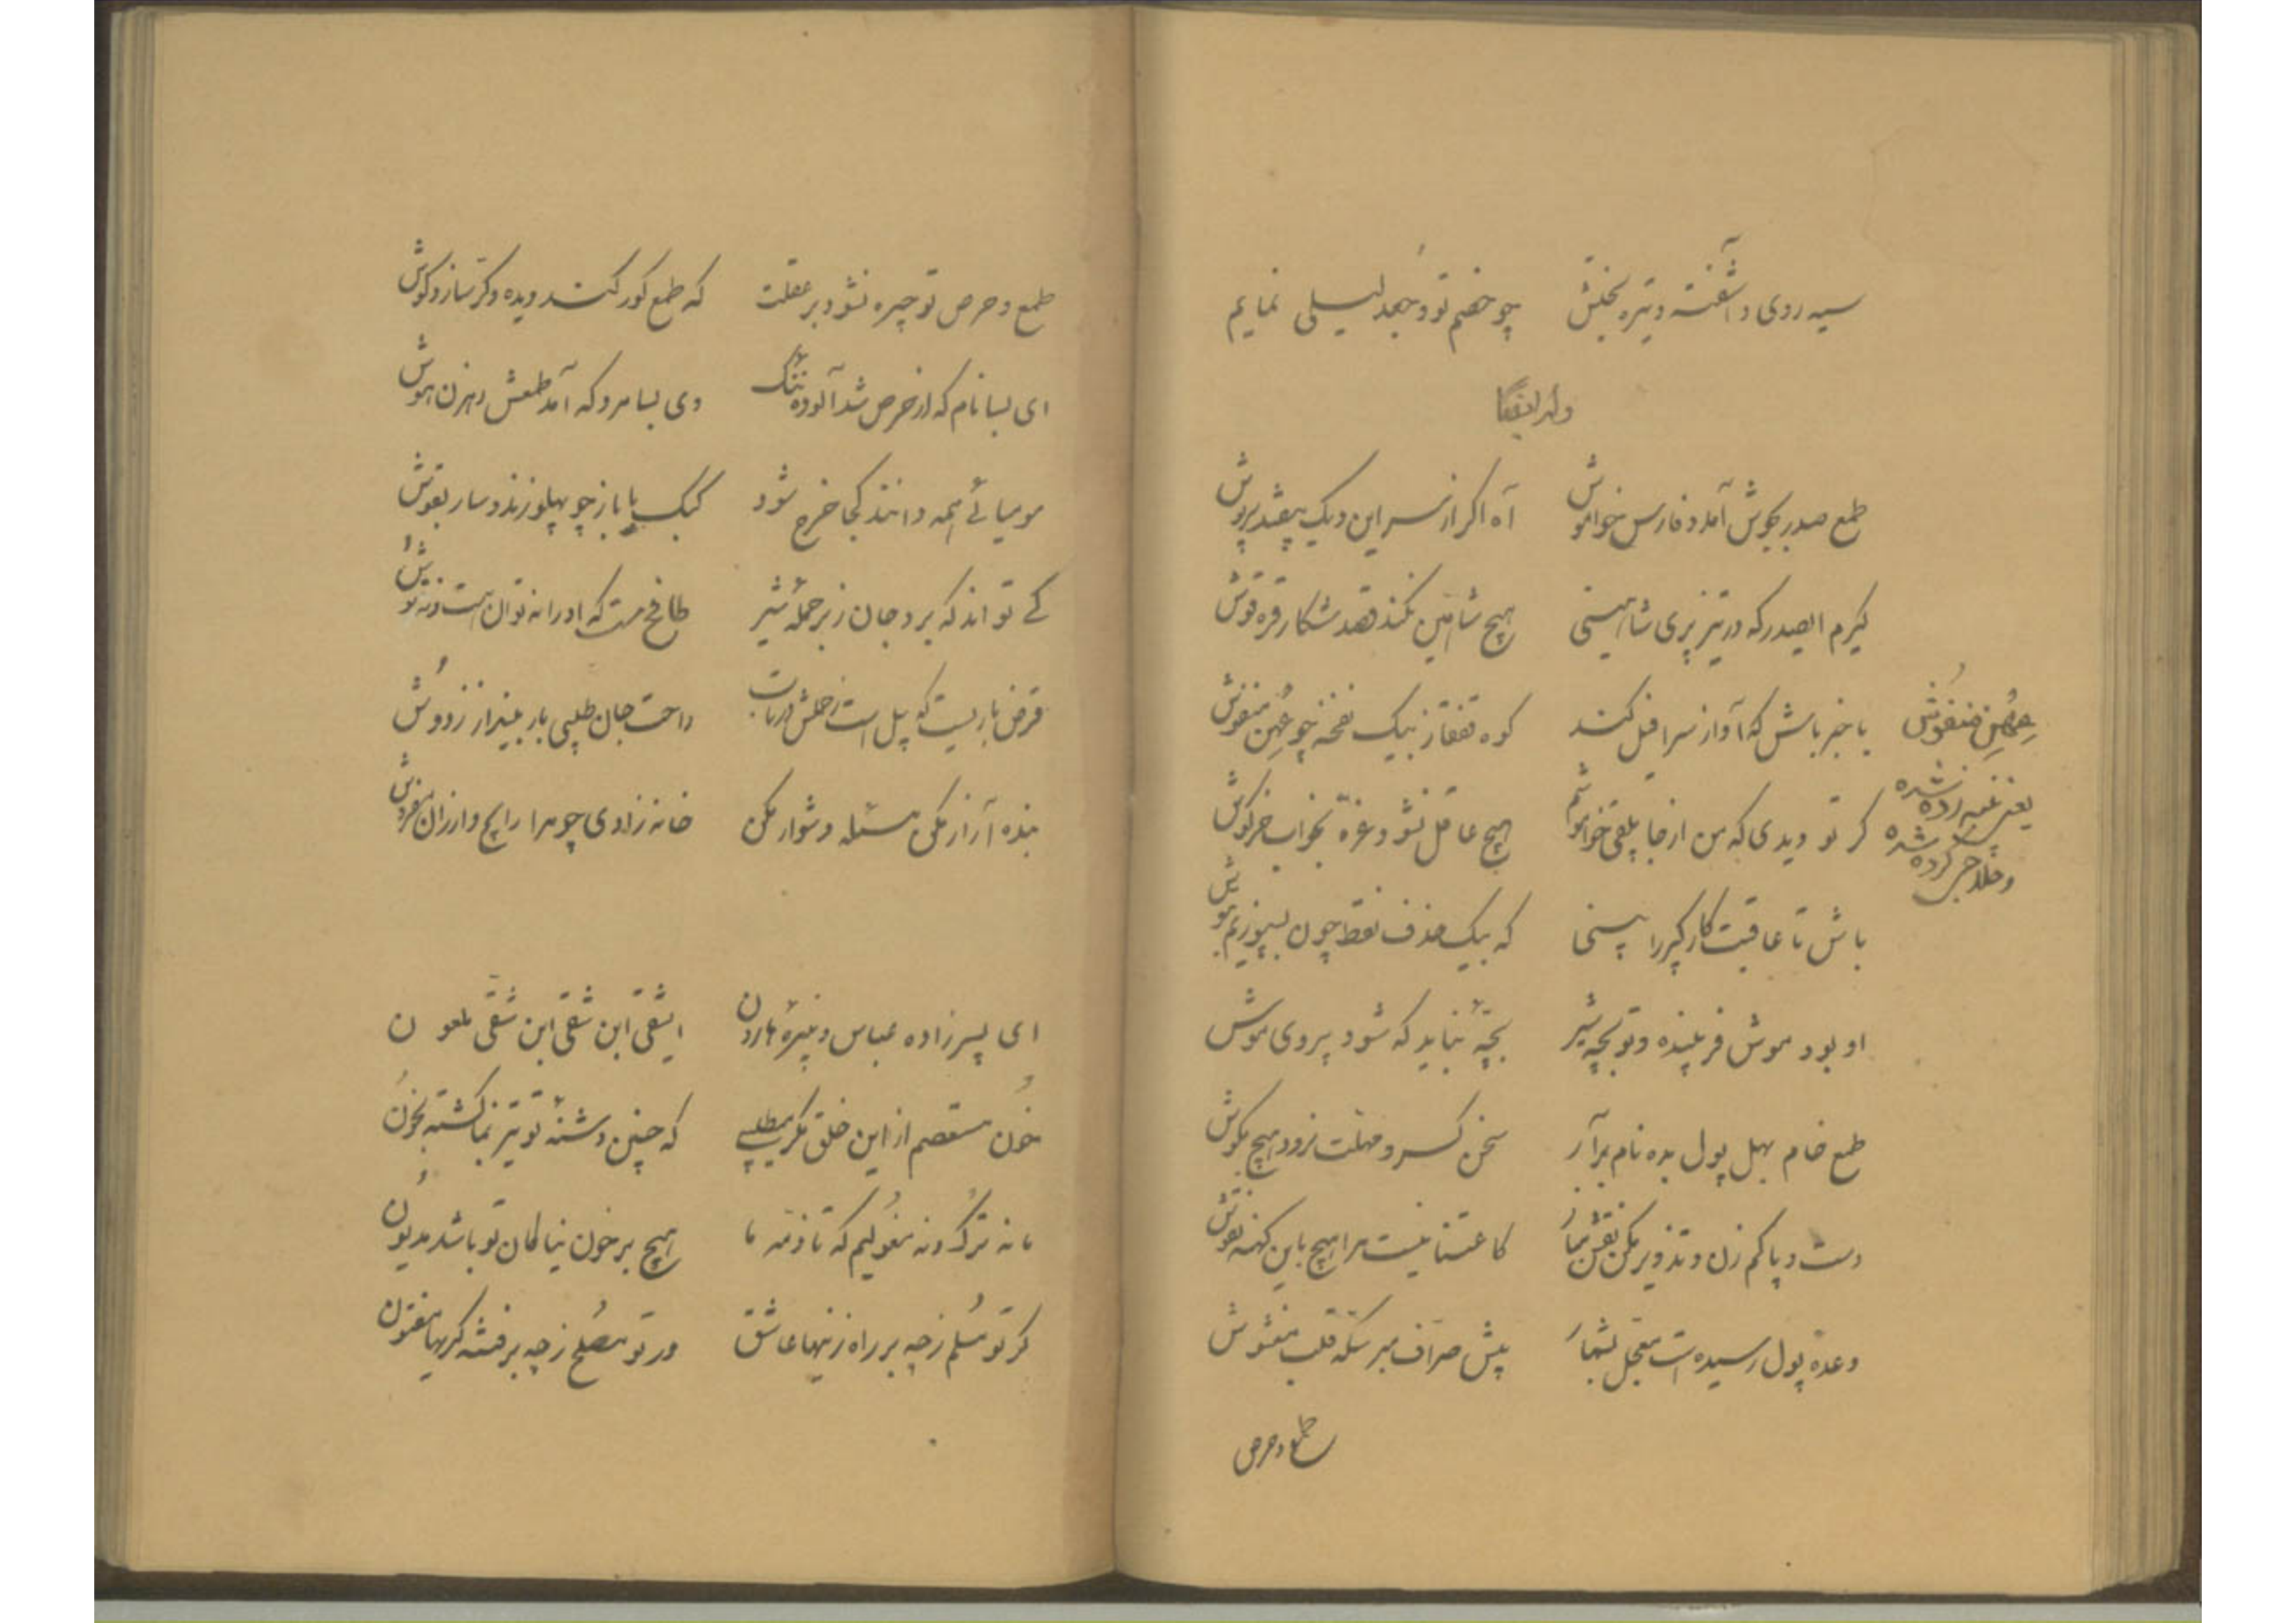 سیه روی و آشفته و تیره بختش چو خصم تو و جعد لیلی نمایم
وله ایضا
طمع صدر بجوش آمد و فارس خاموش آه اگر از سر این دیک بیفتد سرپوش
گیرم الصدر که در تیز پری شاهینی هیچ شاهین نکند قصد شکار قره قوش
با خبر باش که آواز سرافیل کند کوه قفقاز بیک نفخه چو عهن منفوش
عهن منفوش
یعنی پنبه زده شده
و حلاجی کرده شده
گر تو دیدی که من از جا خاموشم هیچ عاقل نشود غره بخواب خرگوش
باش تا عاقبت کار که بیک حذف نقط چون
او بود موش فریبنده و تو بچه شیر بچه نباید که شود پیروی موش
طمع خام بهل پول بده نام برآر سخن کسر و مهلت نرود هیچ بگوش
دست و پا کم زن و تذویر مکن نقش نما کاعتنا نیست مرا هیچ باین کهنه نقوش
وعده پول رسیده است بشمار پیش صراف مبر سکه قلب مغشوش
طمع و حرص
طمع و حرص تو چیره نشود بر عقلت که طمع کور کند دیده و کر سازد گوش
ای بسا نام که از حرص شد آلوده ننگ وی بسا مرد که آمد طمعش رهزن هوش
مومیائی همه دانند کجا خرج شود کبک با باز چو پهلو زند و سار بقوش
کی تواند که برد جان ز بر حمله شیر که او را نه توان است و نه توش
قرض باریست که پیل است ز حملش راحت جان طلبی بار بینداز ز دوش
بنده آزار مکن مسئله دشوار مکن خانه زادی چو مرا رایج و ارزان مفروش
ای پسر زاده عباس و نبیره هارون ایشقی ابن شقی ابن شقی ملعون
خون مستعصم از این خلق مگر میطلبی که چنین دشنه تو تیز نما گشته بخون
ما نه ترک و نه مغولیم که تا ذمه ما هیچ بر خون نیاکان تو باشد مدیون
گر تو مسلم ز چه بر راه زنیها عاشق ور تو مصلح ز چه بر فتنه گریها مفتون